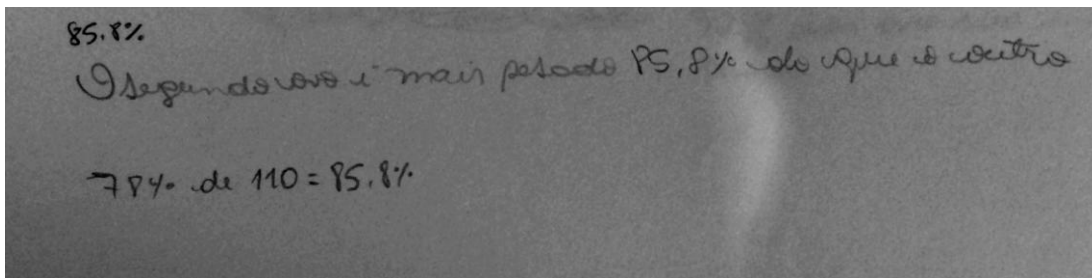 85.8%
O segundo ovo é mais pesado 85,8% do que o outro
78% de 110 = 85.8%